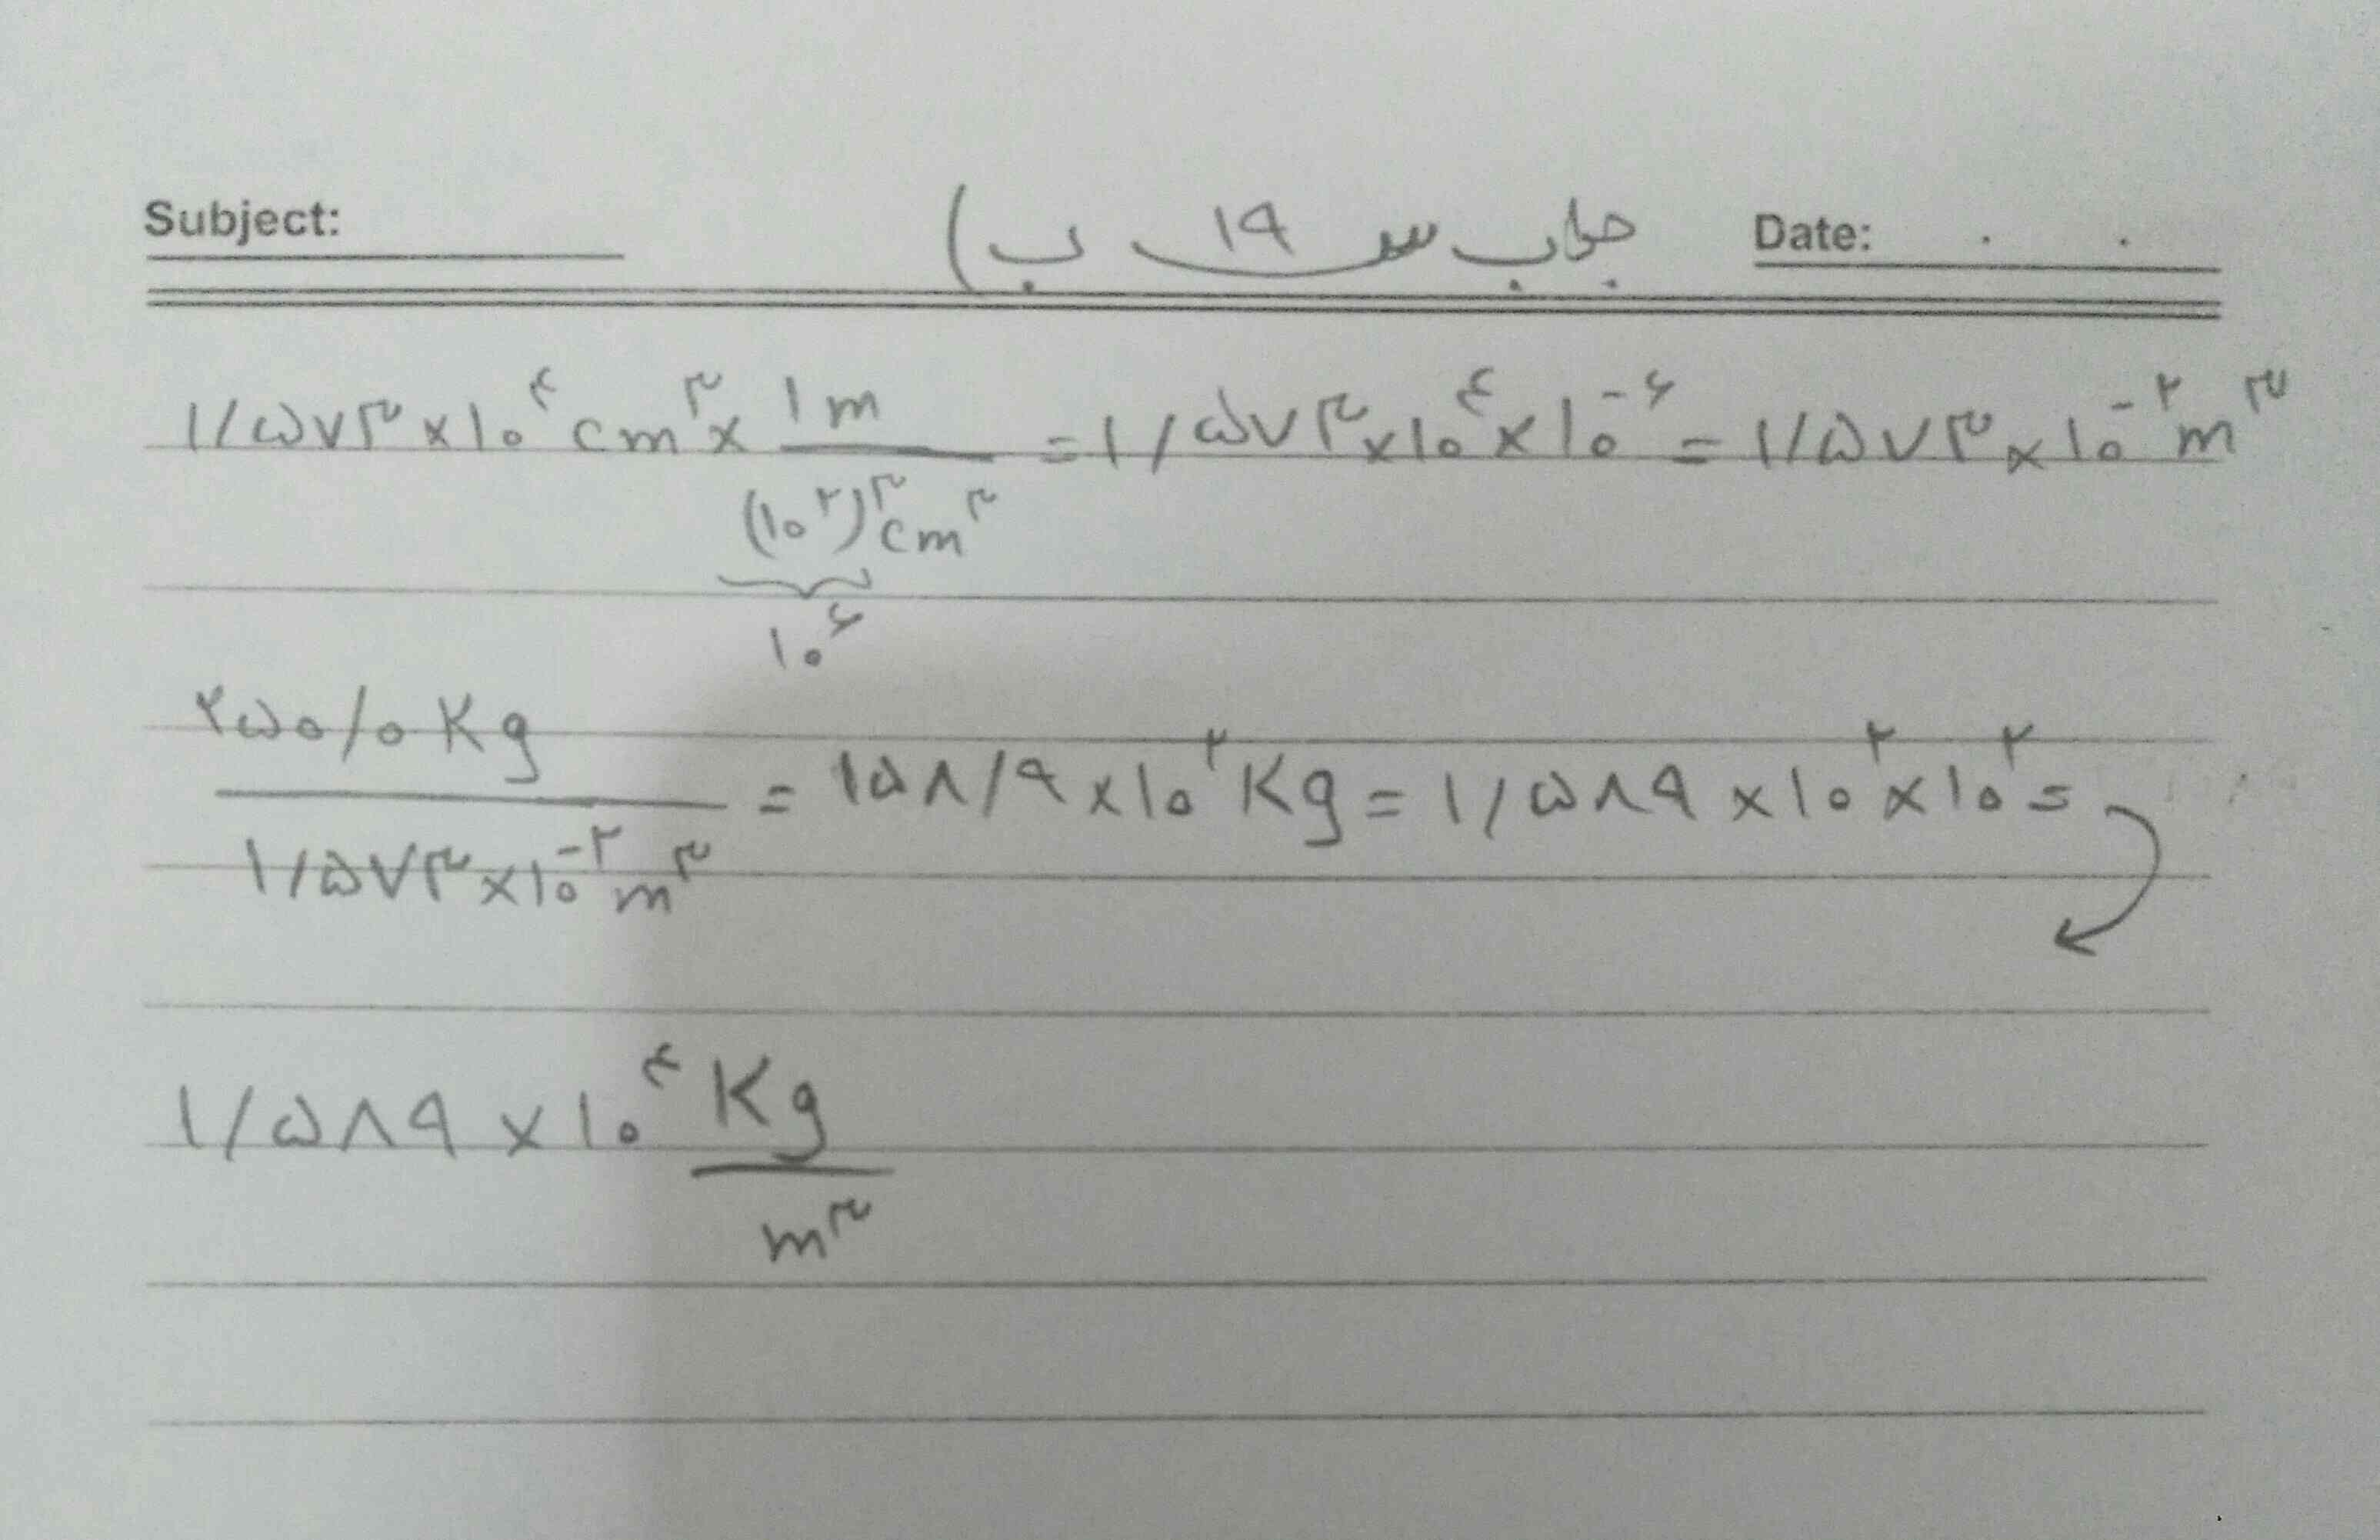 Subject:
جواب س ۱۹ ب)
Date: . .
۱/۵۷۳ × ۱۰^۴ cm^۳ × ۱m / (۱۰^۲)^۳ cm^۳ = ۱/۵۷۳ × ۱۰^۴ × ۱۰^-۶ = ۱/۵۷۳ × ۱۰^-۲ m^۳
۱۰^۶
۲۵۰/۰ Kg / ۱/۵۷۳ × ۱۰^-۲ m^۳ = ۱۵۸/۹ × ۱۰^۲ Kg = ۱/۵۸۹ × ۱۰^۲ × ۱۰^۲ =
۱/۵۸۹ × ۱۰^۴ Kg / m^۳